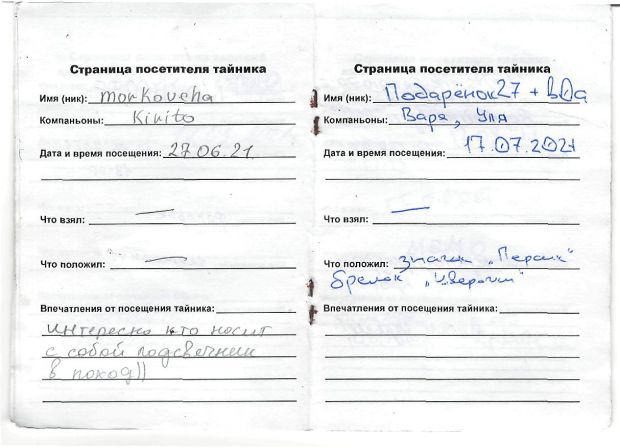 Страница посетителя тайника
Имя (ник): morkovcha
Компаньоны: Kirito
Дата и время посещения: 27.06.21.
Что взял: —
Что положил: —
Впечатления от посещения тайника:
интересно кто носит
с собой подсвечник
в поход))
Страница посетителя тайника
Имя (ник): Подарёнок27 + вОа
Компаньоны: Варя, Уля
Дата и время посещения: 17.07.2021
Что взял: —
Что положил: значок „Персик“
брелок
Впечатления от посещения тайника: